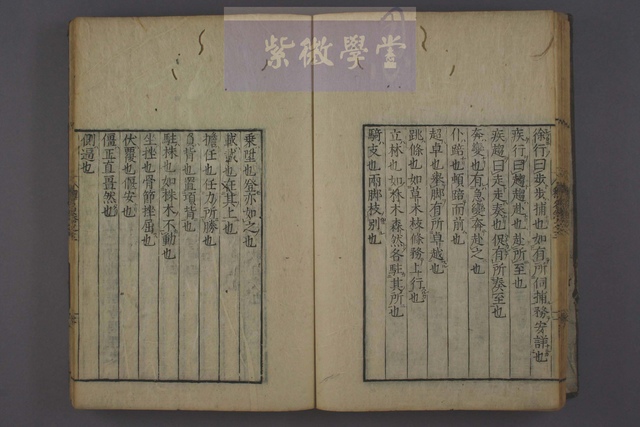 紫微學堂
徐行曰步步捕也如有所伺捕務安詳也
疾行曰趨趨赴也赴所至也
疾趨曰走走奏也促有所奏至也
奔變也有急變奔赴之也
仆踣也頓踣而前也
超卓也舉脚有所卓越也
跳條也如草木枝條務上行也
立林也如林木森然各駐其所也
騎支也兩脚枝別也
乗陞也登亦如之也
載戴也在其上也
擔任也任力所勝也
負背也置項背也
駐株也如株木不動也
坐挫也骨節挫屈也
伏覆也偃安也
僵正直畺然也
側逼也